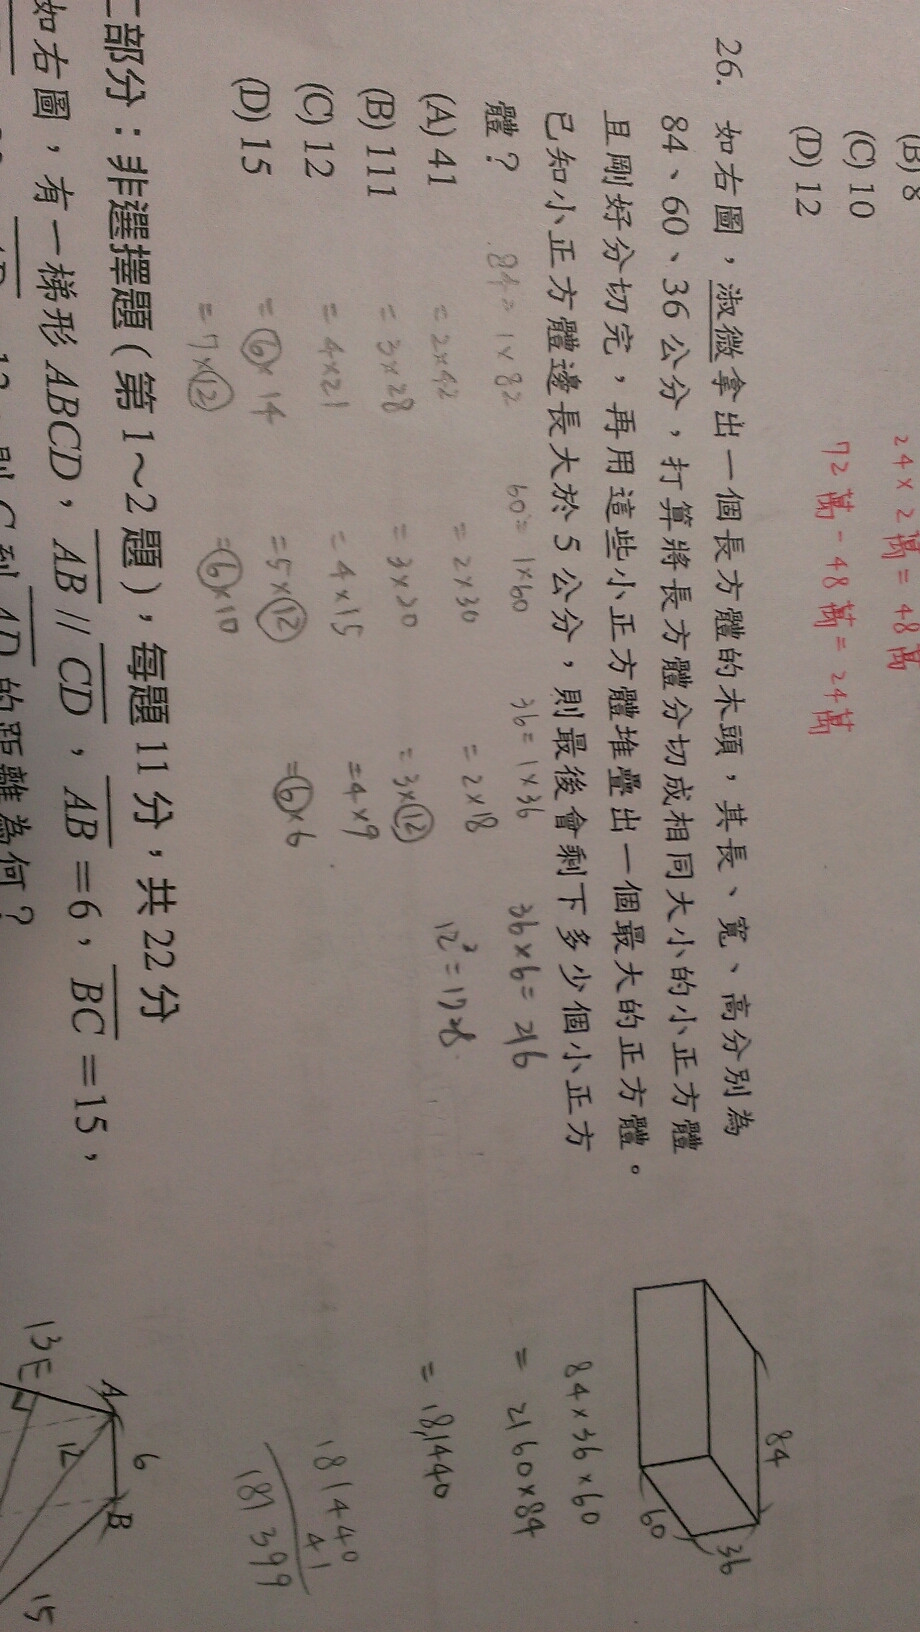 (B) 8
(C) 10
(D) 12
24×2萬=48萬
72萬-48萬=24萬
26. 如右圖，淑微拿出一個長方體的木頭，其長、寬、高分別為
84、60、36公分，打算將長方體分切成相同大小的小正方體
且剛好分切完，再用這些小正方體堆疊出一個最大的正方體。
已知小正方體邊長大於5公分，則最後會剩下多少個小正方
體？
(A) 41
(B) 111
(C) 12
(D) 15
84=1×82
=2×42
=3×28
=4×21
=6×14
=7×12
60=1×60
=2×30
=3×20
=4×15
=5×12
=6×10
36=1×36
=2×18
=3×12
=4×9
=6×6
36×6=216
12³=1728
84
60
36
84×36×60
=2160×84
=181440
181440
41
181399
二部分：非選擇題(第1~2題)，每題11分，共22分
如右圖，有一梯形ABCD，AB//CD，AB=6，BC=15，
的距離為何？
A
6
B
13
E
12
15